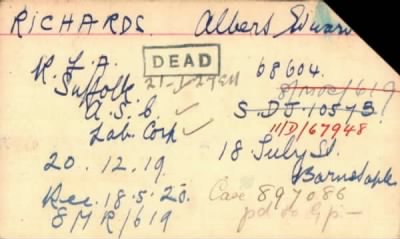 RICHARDS. Albert Edward
DEAD
R.F.A. 68604.
Suffolk 8/MR/619
A.S.C. S.D.J. 1057B.
Lab. Corp 11/D/67948
20.12.19 18 July St.
Barnstaple
Rec. 18.5.20. Case 897086
8MR/619